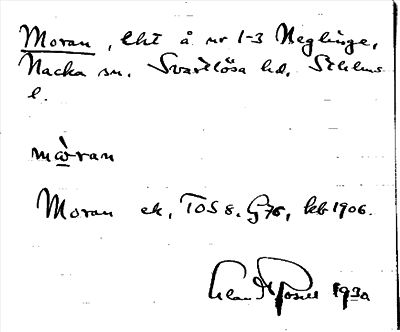 Moran, lht å nr 1-3 Neglinge,
Nacka sn. Svartlösa hd. Sthlms
l.
mòran
Moran ek, TOS 8. G76, kb 1906.
1930